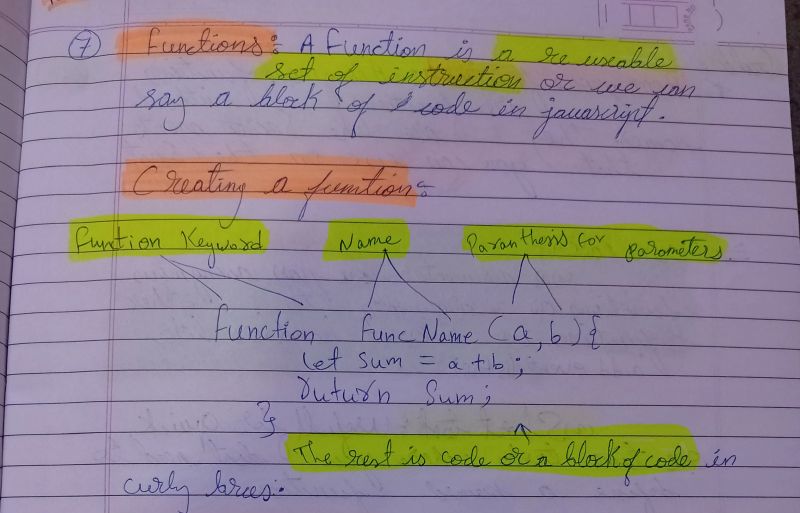 7 Functions: A Function is a re useable
set of instruction or we can
say a block of code in javascript.
Creating a function:
Function Keyword Name Paranthesis for parameters.
function funcName (a, b) {
let sum = a + b ;
return Sum ;
}
The rest is code or a block of code in
curly braces: